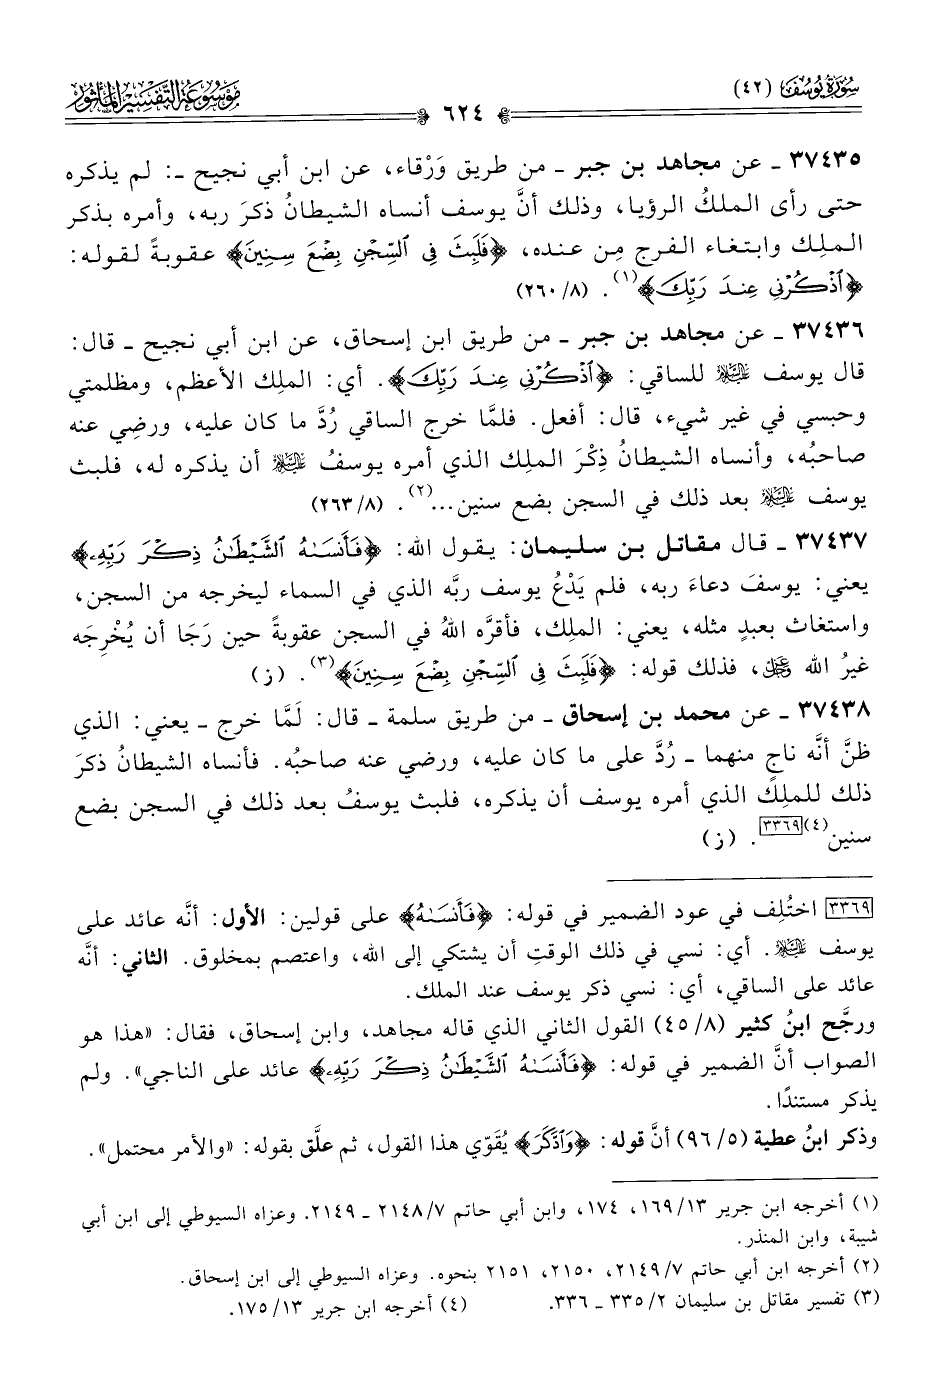 سُورَةُ يُوسُفَ (٤٢)
٦٢٤
مَوْسُوعَة التَّفْسِيْرِ المَأْثُور
٣٧٤٣٥ ـ عن مجاهد بن جبر ـ من طريق وَرْقاء، عن ابن أبي نجيح ـ: لم يذكره
حتى رأى الملكُ الرؤيا، وذلك أنَّ يوسف أنساه الشيطانُ ذكرَ ربه، وأمره بذكر
الملِك وابتغاء الفرج مِن عنده، ﴿فَلَبِثَ فِى ٱلسِّجْنِ بِضْعَ سِنِينَ﴾ عقوبةً لقوله:
﴿ٱذْكُرْنِى عِندَ رَبِّكَ﴾(١). (٨/ ٢٦٠)
٣٧٤٣٦ ـ عن مجاهد بن جبر ـ من طريق ابن إسحاق، عن ابن أبي نجيح ـ قال:
قال يوسف عليه السلام للساقي: ﴿ٱذْكُرْنِى عِندَ رَبِّكَ﴾. أي: الملِك الأعظم، ومظلمتي
وحبسي في غير شيء، قال: أفعل. فلمَّا خرج الساقي رُدَّ ما كان عليه، ورضِي عنه
صاحبُه، وأنساه الشيطانُ ذِكْرَ الملِك الذي أمره يوسفُ عليه السلام أن يذكره له، فلبث
يوسف عليه السلام بعد ذلك في السجن بضع سنين...(٢). (٨/ ٢٦٣)
٣٧٤٣٧ ـ قال مقاتل بن سليمان: يقول الله: ﴿فَأَنسَىٰهُ ٱلشَّيْطَٰنُ ذِكْرَ رَبِّهِۦ﴾
يعني: يوسفَ دعاءَ ربه، فلم يَدْعُ يوسف ربَّه الذي في السماء ليخرجه من السجن،
واستغاث بعبدٍ مثله، يعني: الملِك، فأقرَّه اللهُ في السجن عقوبةً حين رَجَا أن يُخْرِجَه
غيرُ الله عز وجل، فذلك قوله: ﴿فَلَبِثَ فِى ٱلسِّجْنِ بِضْعَ سِنِينَ﴾(٣). (ز)
٣٧٤٣٨ ـ عن محمد بن إسحاق ـ من طريق سلمة ـ قال: لَمَّا خرج ـ يعني: الذي
ظنَّ أنَّه ناجٍ منهما ـ رُدَّ على ما كان عليه، ورضي عنه صاحبُه. فأنساه الشيطانُ ذكرَ
ذلك للملِكِ الذي أمره يوسف أن يذكره، فلبث يوسفُ بعد ذلك في السجن بضع
سنين(٤)[٣٣٦٩]. (ز)
[٣٣٦٩] اختُلِف في عود الضمير في قوله: ﴿فَأَنسَىٰهُ﴾ على قولين: الأول: أنَّه عائد على
يوسف عليه السلام. أي: نسي في ذلك الوقتِ أن يشتكي إلى الله، واعتصم بمخلوق. الثاني: أنَّه
عائد على الساقي، أي: نسي ذكر يوسف عند الملك.
ورجَّح ابنُ كثير (٨/ ٤٥) القول الثاني الذي قاله مجاهد، وابن إسحاق، فقال: «هذا هو
الصواب أنَّ الضمير في قوله: ﴿فَأَنسَىٰهُ ٱلشَّيْطَٰنُ ذِكْرَ رَبِّهِۦ﴾ عائد على الناجي». ولم
يذكر مستندًا.
وذكر ابنُ عطية (٥/ ٩٦) أنَّ قوله: ﴿وَٱدَّكَرَ﴾ يُقَوِّي هذا القول، ثم علَّق بقوله: «والأمر محتمل».
(١) أخرجه ابن جرير ١٣/ ١٦٩، ١٧٤، وابن أبي حاتم ٧/ ٢١٤٨ ـ ٢١٤٩. وعزاه السيوطي إلى ابن أبي
شيبة، وابن المنذر.
(٢) أخرجه ابن أبي حاتم ٧/ ٢١٤٩، ٢١٥٠، ٢١٥١ بنحوه. وعزاه السيوطي إلى ابن إسحاق.
(٣) تفسير مقاتل بن سليمان ٢/ ٣٣٥ ـ ٣٣٦. (٤) أخرجه ابن جرير ١٣/ ١٧٥.